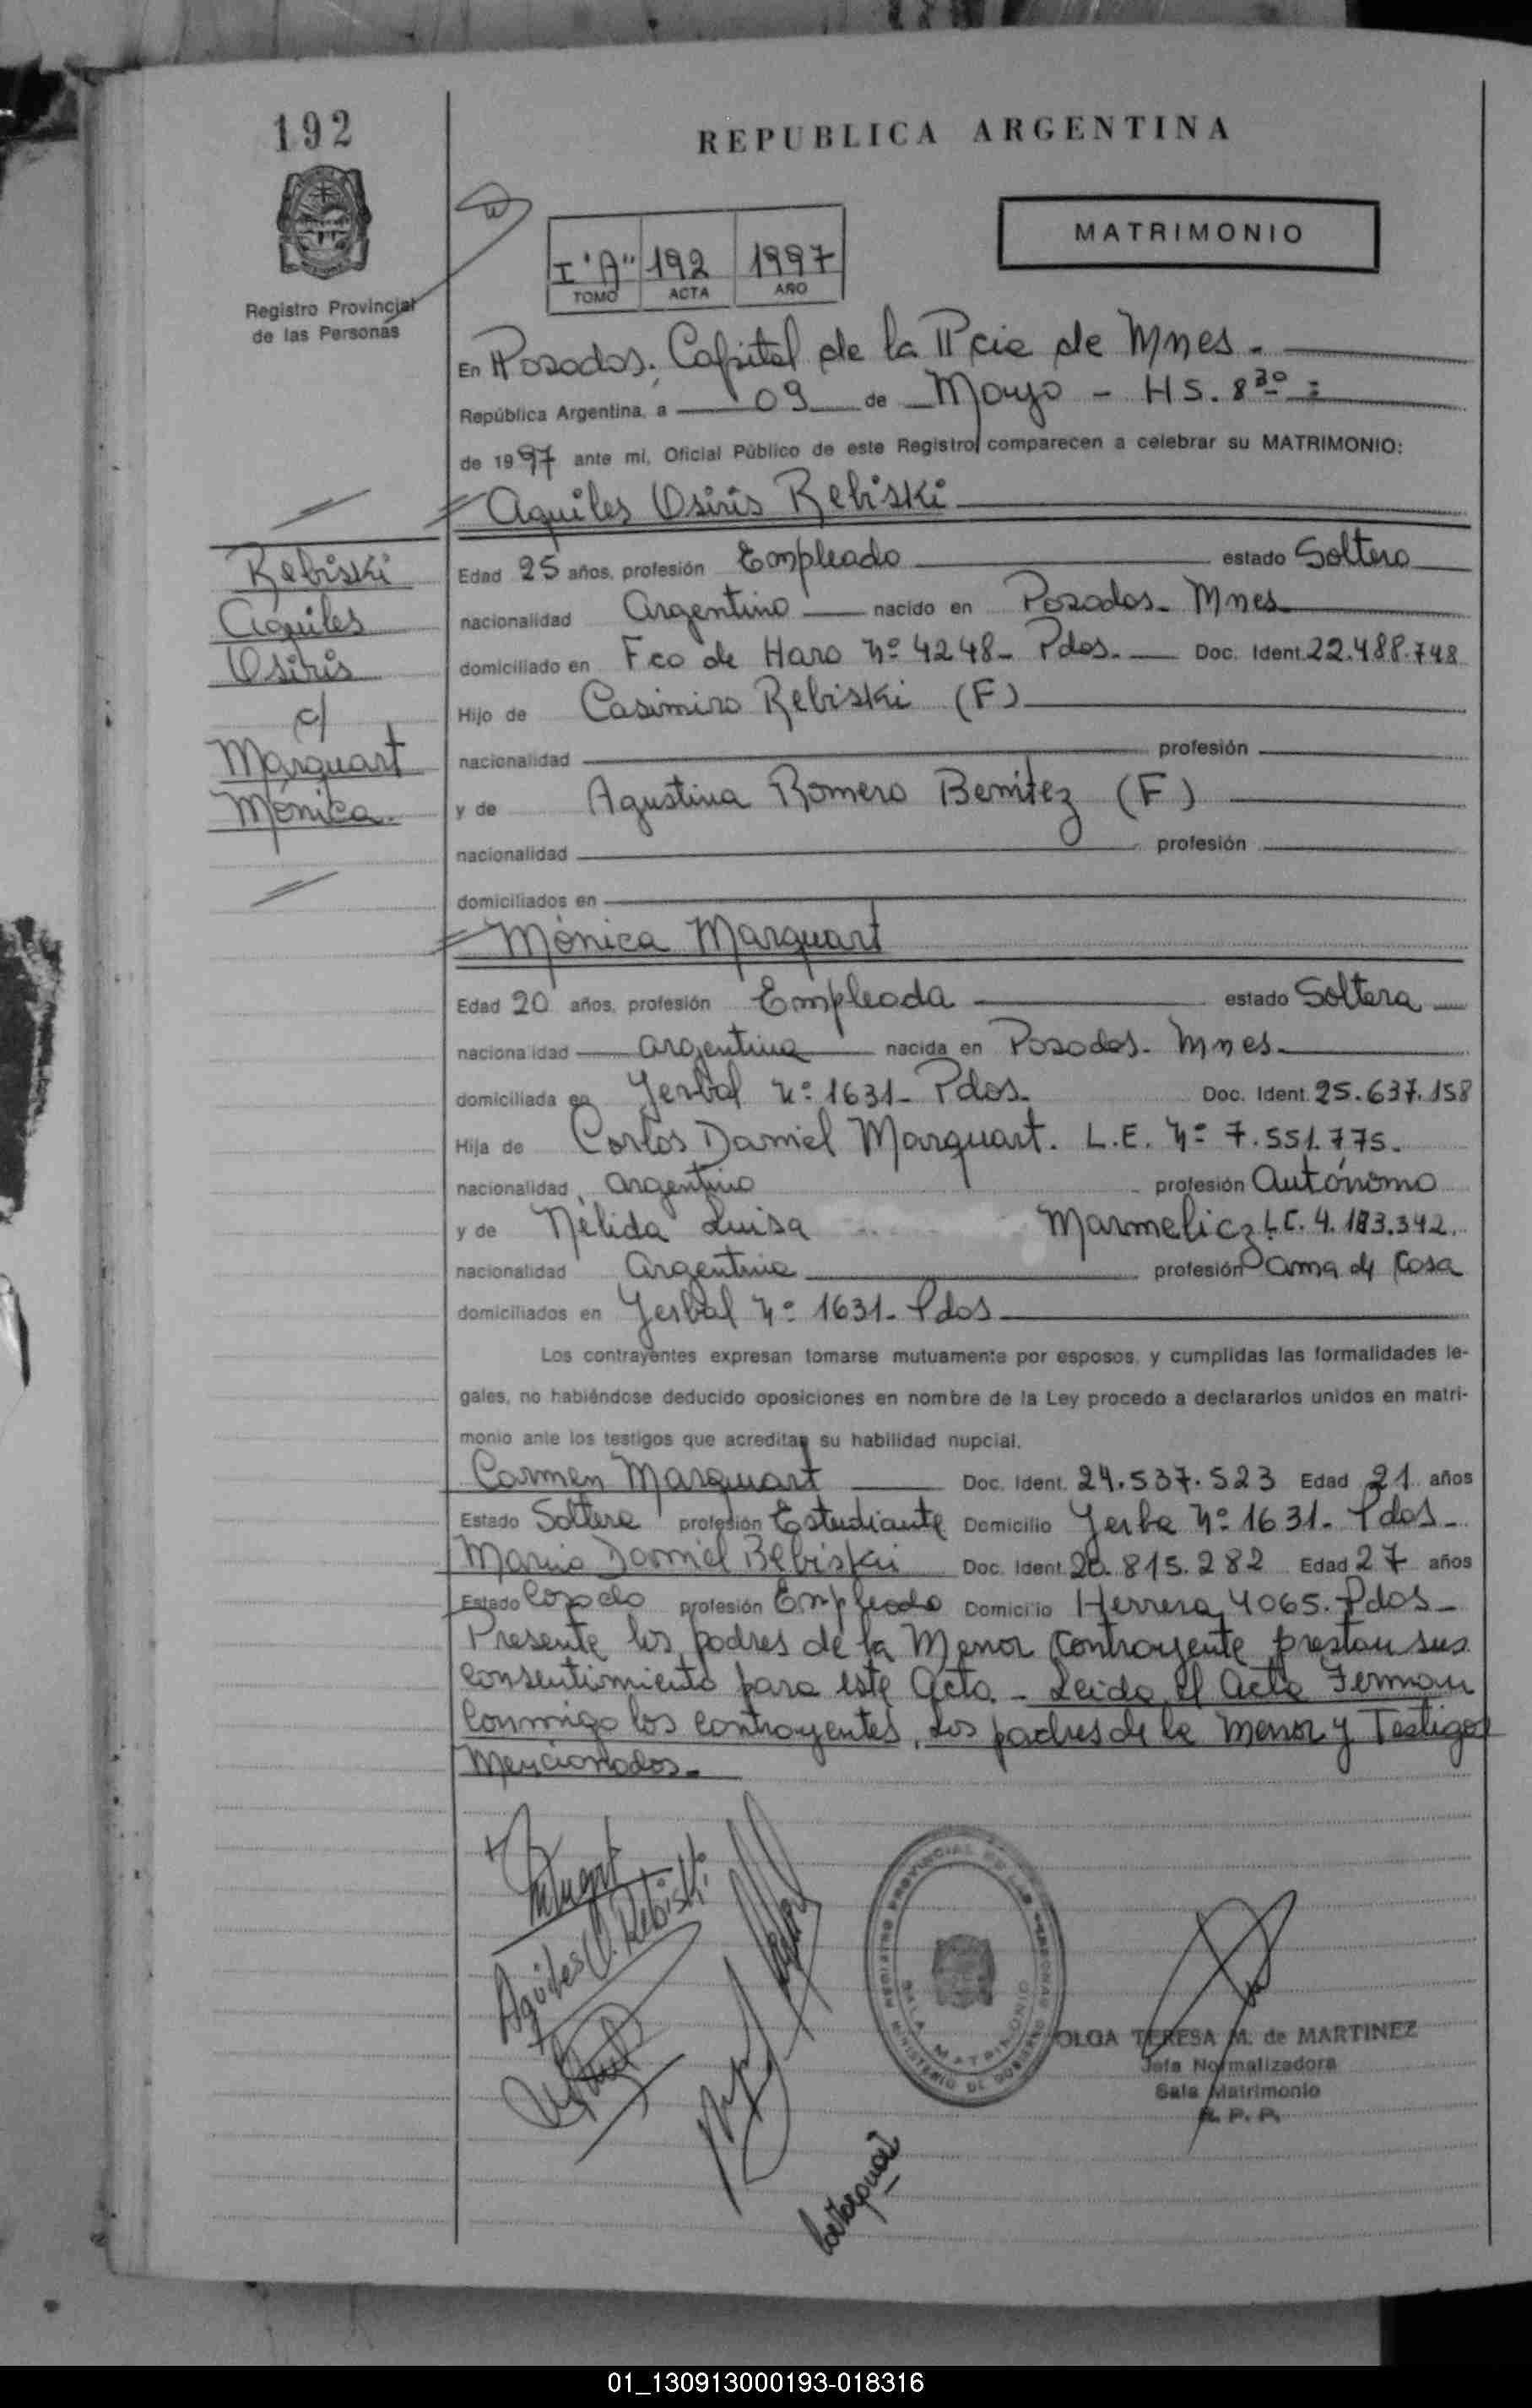 192
REPUBLICA ARGENTINA
MATRIMONIO
I "A" 192 1997
TOMO ACTA AÑO
Registro Provincial
de las Personas
En Posadas, Capital de la Pcia de Mnes.
República Argentina, a 09 de Mayo - HS. 8 30
de 1997 ante mí, Oficial Público de este Registro, comparecen a celebrar su MATRIMONIO:
Aquiles Osiris Rebiski
Rebiski
Aquiles
Osiris
c/
Marquart
Mónica.
Edad 25 años, profesión Empleado estado Soltero
nacionalidad Argentino nacido en Posadas - Mnes
domiciliado en Fco de Haro Nº 4248 - Pdas. Doc. Ident. 22.488.748
Hijo de Casimiro Rebiski (F)
nacionalidad profesión
y de Agustina Romero Benitez (F)
nacionalidad profesión
domiciliados en
Mónica Marquart
Edad 20 años, profesión Empleada estado Soltera
nacionalidad Argentina nacida en Posadas - Mnes.
domiciliada en Yerbal Nº 1631 - Pdas. Doc. Ident. 25.637.158
Hija de Carlos Daniel Marquart. L.E. Nº 7.551.775.
nacionalidad Argentino profesión Autónomo
y de Nélida Luisa Marmelicz L.C. 4.183.342.
nacionalidad Argentina profesión Ama de Casa
domiciliados en Yerbal Nº 1631 - Pdas
Los contrayentes expresan tomarse mutuamente por esposos, y cumplidas las formalidades le-
gales, no habiéndose deducido oposiciones en nombre de la Ley procedo a declararlos unidos en matri-
monio ante los testigos que acreditan su habilidad nupcial.
Carmen Marquart Doc. Ident. 24.537.523 Edad 21 años
Estado Soltera profesión Estudiante Domicilio Yerba Nº 1631 - Pdas -
Mario Daniel Rebiski Doc. Ident. 20.815.282 Edad 27 años
Estado Casado profesión Empleado Domicilio Herrera 4065. Pdas -
Presente los padres de la Menor Contrayente prestan sus
consentimiento para este Acto. - Leida el Acta Firman
Conmigo los contrayentes, los padres de la Menor y Testigos
Mencionados.
Aquiles O. Rebiski
SALA MATRIMONIO
MINISTERIO DE GOBIERNO
OLGA TERESA M. de MARTINEZ
Jefa Normalizadora
Sala Matrimonio
R. P. P.
01_130913000193-018316